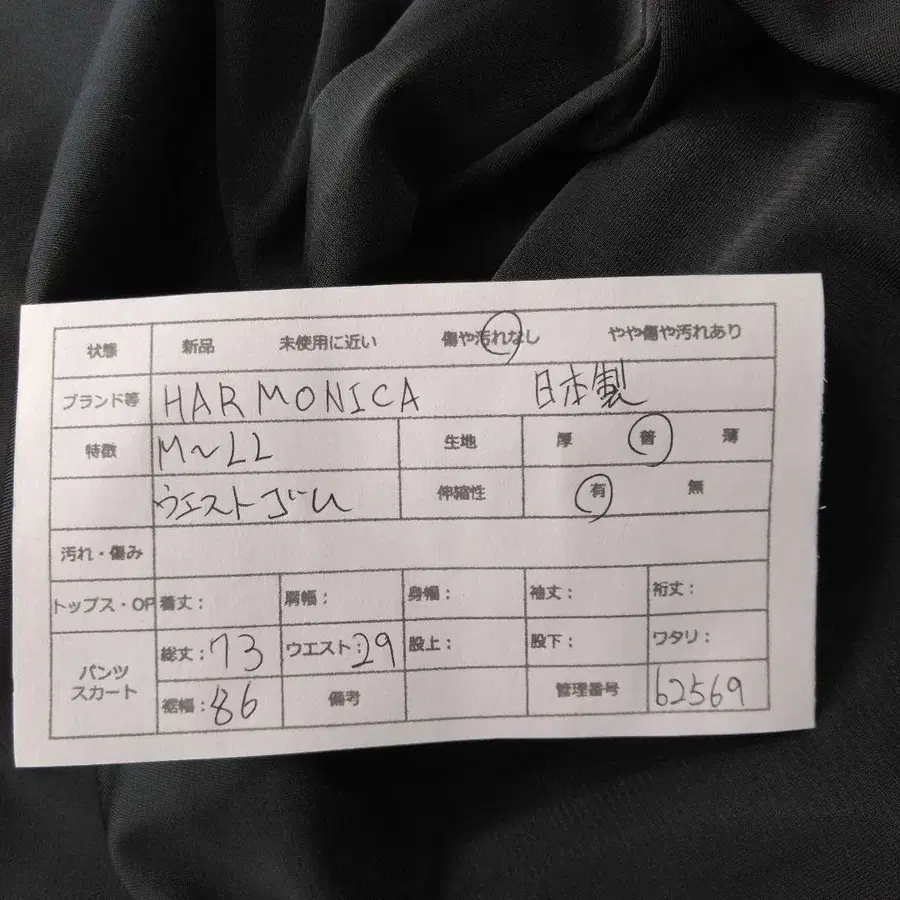 状態 新品 未使用に近い 傷や汚れなし やや傷や汚れあり
ブランド等 HARMONICA 日本製
特徴 M～LL 生地 厚 普 薄
ウエストゴム 伸縮性 有 無
汚れ・傷み
トップス・OP 着丈： 肩幅： 身幅： 袖丈： 裄丈：
パンツ スカート 総丈：73 ウエスト：29 股上： 股下： ワタリ：
裾幅：86 備考 管理番号 62569